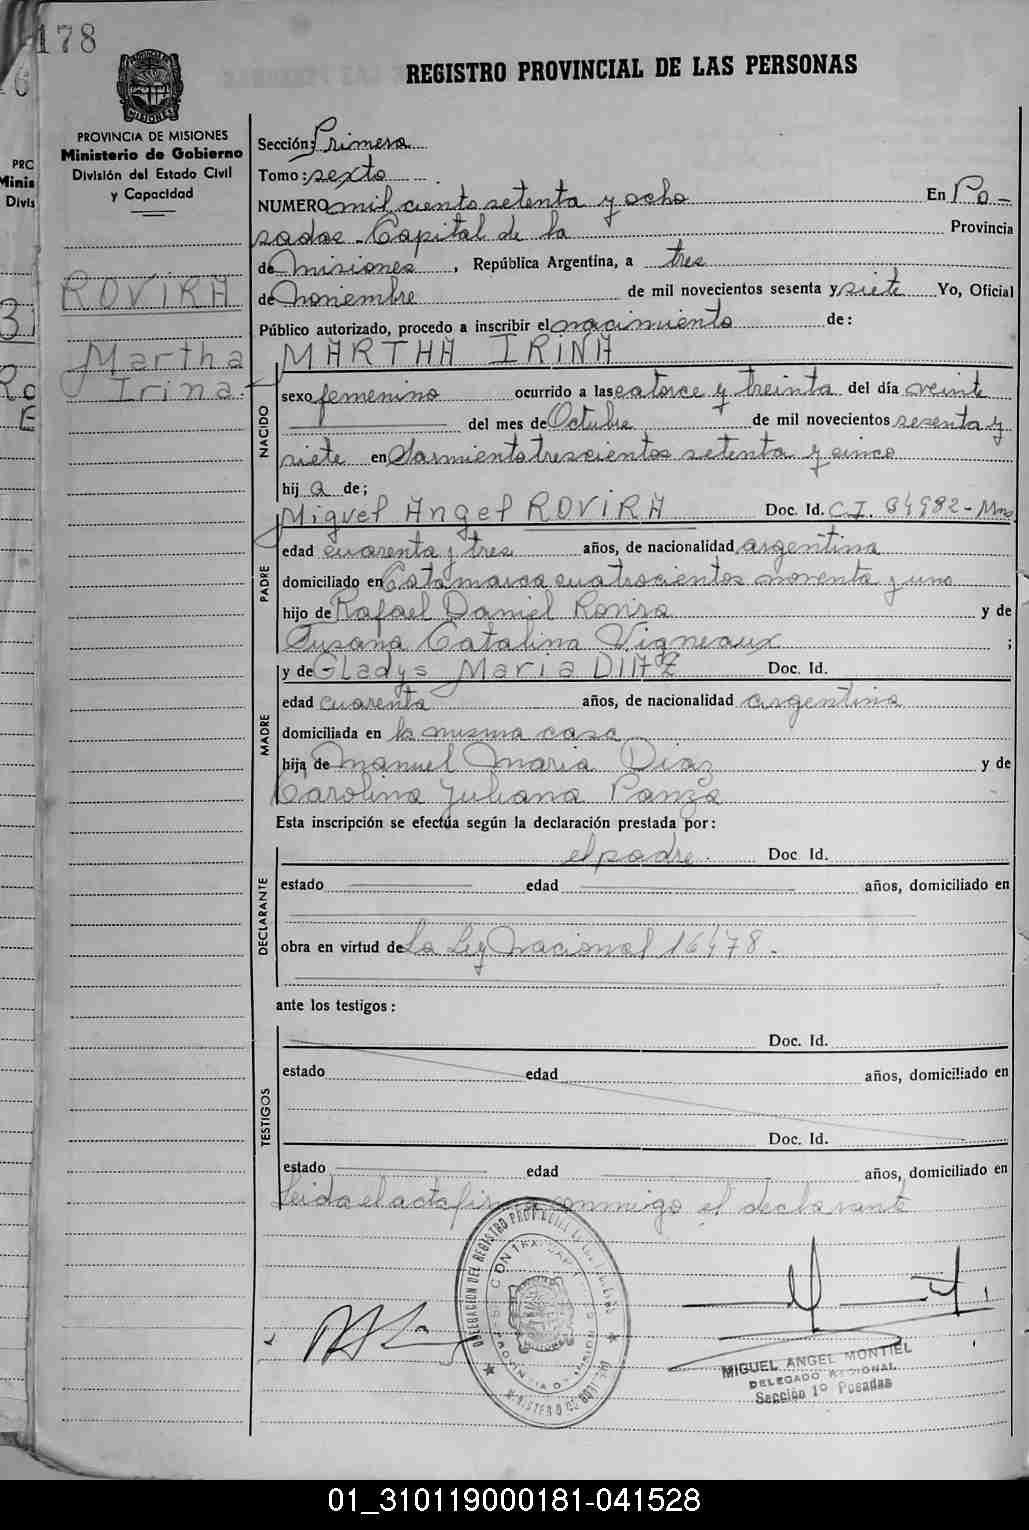 178
REGISTRO PROVINCIAL DE LAS PERSONAS
PROVINCIA DE MISIONES
Ministerio de Gobierno
División del Estado Civil
y Capacidad
ROVIRA
Martha
Irina.
Sección: Primera
Tomo: sexto
NUMERO mil ciento setenta y ocho En Po-
sadas-Capital de la Provincia
de Misiones, República Argentina, a tres
de noviembre de mil novecientos sesenta y siete Yo, Oficial
Público autorizado, procedo a inscribir el nacimiento de:
MARTHA IRINA
NACIDO
sexo femenino ocurrido a las catorce y treinta del día veinte
del mes de Octubre de mil novecientos sesenta y
siete en Sarmiento trescientos setenta y cinco
hij a de;
Miguel Angel ROVIRA Doc. Id. C.I. 84982-Mns
PADRE
edad cuarenta y tres años, de nacionalidad argentina
domiciliado en Catamarca cuatrocientos noventa y uno
hijo de Rafael Daniel Rovira y de
Susana Catalina Vigneaux ;
y de Gladys Maria DIAZ Doc. Id.
MADRE
edad cuarenta años, de nacionalidad argentina
domiciliada en la misma casa
hija de Manuel Maria Diaz y de
Carolina Juliana Panza
Esta inscripción se efectúa según la declaración prestada por:
el padre. Doc Id.
DECLARANTE
estado edad años, domiciliado en
obra en virtud de La Ley Nacional 16478.
ante los testigos:
Doc. Id.
TESTIGOS
estado edad años, domiciliado en
Doc. Id.
estado edad años, domiciliado en
Leida el acta firma conmigo el declarante
MIGUEL ANGEL MONTIEL
DELEGADO REGIONAL
Sección 1º Posadas
01_310119000181-041528